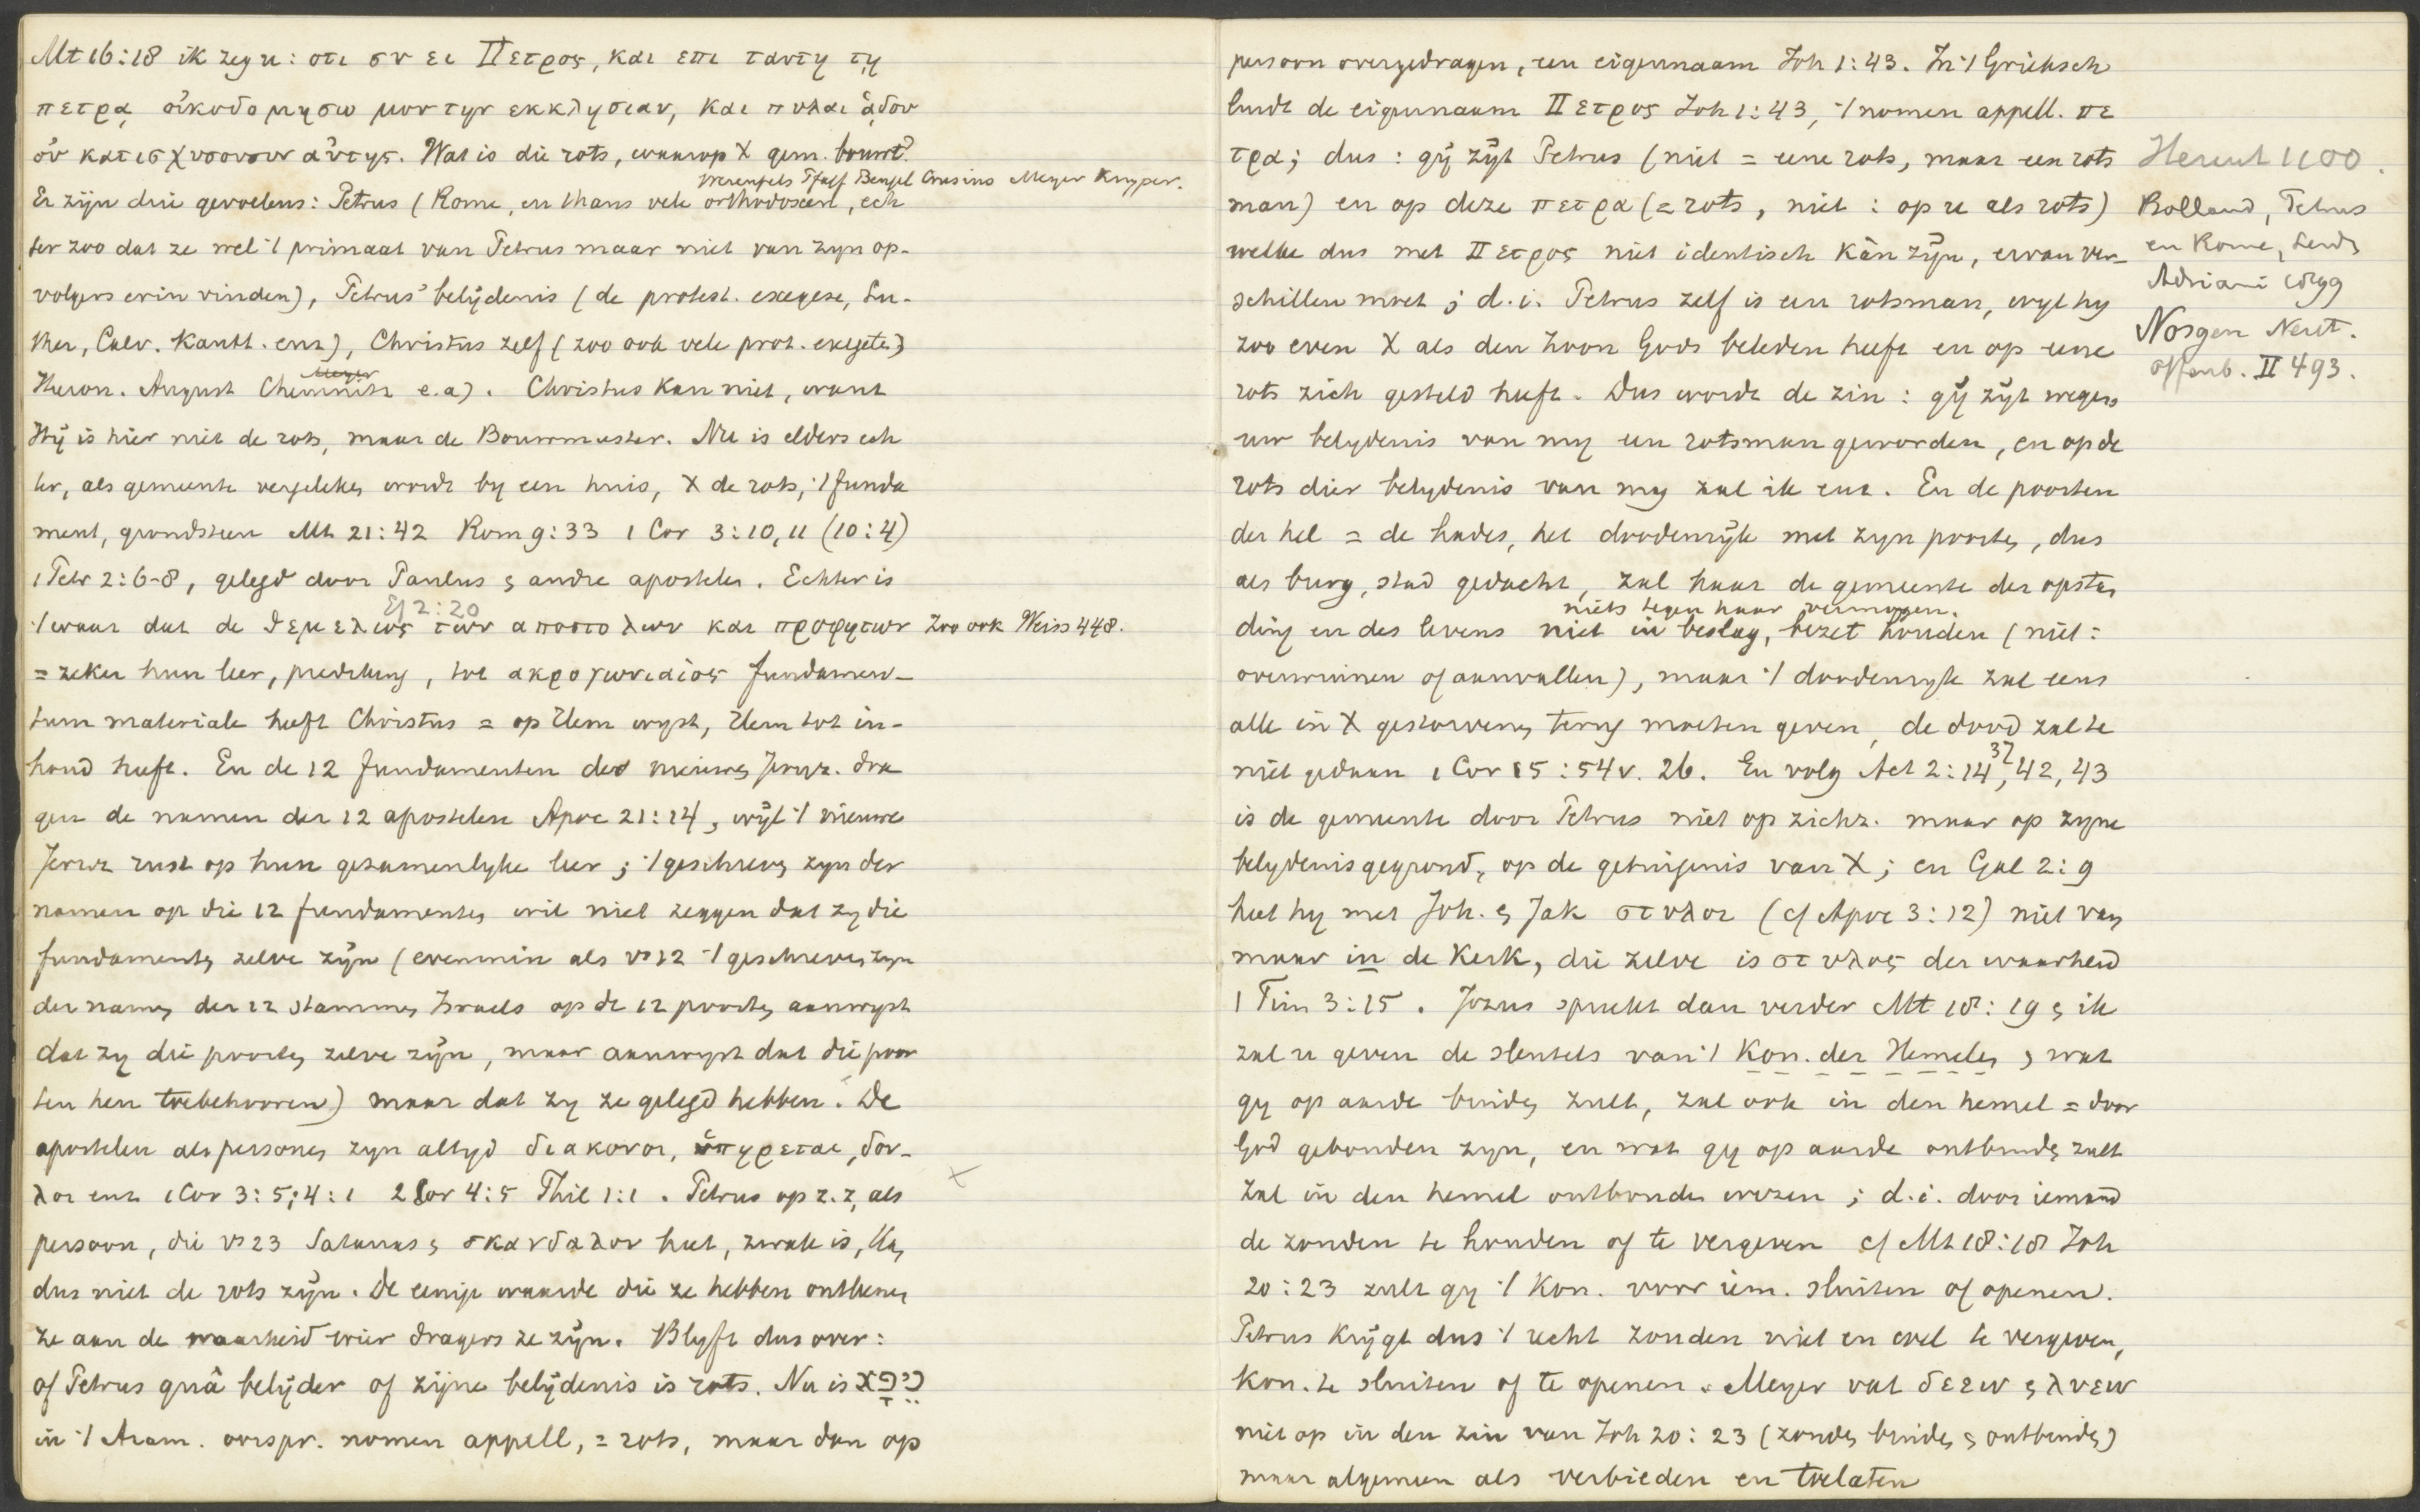 Mt 16:18 ik zeg u: οτι συ ει Πετρος, και επι ταυτῃ τῃ
πετρᾳ οἰκοδομησω μου την εκκλησιαν, και πυλαι ᾁδου
οὐ κατισχυσουσιν αὐτης. Wat is die rots, waarop X gem. bouwt?
Werenfels Pfaff Bengel Crusius Meyer Kuyper.
Er zijn drie gevoelens: Petrus (Rome, en thans vele orthodoxen, ech
ter zoo dat ze wel 't primaat van Petrus maar niet van zyn op-
volgers erin vinden), Petrus' belydenis (de protest. exegese, Lu-
ther, Calv. Kantt. enz), Christus zelf (zoo ook vele prot. exegeten)
Hieron. August Chemnitz e.a). Christus kan niet, want
Hij is hier niet de rots, maar de Bouwmeester. Nu is elders ech
ter, als gemeente vergeleken wordt by een huis, X de rots, 't funda
ment, grondsteen Mt 21:42 Rom 9:33 1 Cor 3:10,11 (10:4)
1 Petr 2:6-8, gelegd door Paulus & andre apostelen. Echter is
Ef 2:20
't waar dat de θεμελιος των αποστολων και προφητων zoo ook Weiss 448.
= zeker hun leer, prediking, tot ακρογωνιαίος fundamen-
tum materiale heeft Christus = op Hem wyst, Hem tot in-
houd heeft. En de 12 fundamenten des nieuwe Jeruz. dra
gen de namen der 12 apostelen Apoc 21:14, wijl 't nieuwe
Jeruz rust op hun gezamenlyke leer; 't geschreven zyn der
namen op die 12 fundamenten wil niet zeggen dat zy die
fundamenten zelve zijn (evenmin als vs 12 't geschreven zyn
der namen der 12 stammen Israels op de 12 poorten aanwyst
dat zy die poorten zelve zijn, maar aanwyst dat die poor
ten hen toebehooren) maar dat zy ze gelegd hebben. De
apostelen als personen zyn altyd διακονοι, ὑπηρεται, δου-
λοι enz 1 Cor 3:5; 4:1 2 Cor 4:5 Phil 1:1. Petrus op z. z, als
persoon, die vs 23 Satanas & σκανδαλον heet, zwak is, kan
dus niet de rots zijn. De eenige waarde die ze hebben ontleenen
ze aan de waarheid wier dragers ze zijn. Blyft dus over:
of Petrus quâ belijder of zijne belijdenis is rots. Nu is כֵּיפָא
in 't Aram. oorspr. nomen appell, = rots, maar dan op
persoon overgedragen, een eigennaam Joh 1:43. In 't Grieksch
luidt de eigennaam Πετρος Joh 1:43, 't nomen appell. πε
τρα; dus: gij zijt Petrus (niet = eene rots, maar een rots
man) en op deze πετρα (= rots, niet: op u als rots)
welke dus met Πετρος niet identisch kàn zijn, ervan ver-
schillen moet; d.i. Petrus zelf is een rotsman, wyl hy
zoo even X als den Zoon Gods beleden heeft en op eene
rots zich gesteld heeft. Dus wordt de zin: gij zijt wegens
uw belydenis van my een rotsman geworden, en op de
rots dier belydenis van my zal ik enz. En de poorten
der hel = de hades, het doodenrijk met zyn poorten, dus
als burg, stad gedacht, zal haar de gemeente der opstan
niets tegen haar vermogen.
ding en des levens niet in beslag, bezet houden (niet:
overwinnen of aanvallen), maar 't doodenryk zal eens
alle in X gestorvenen terug moeten geven, de dood zal te
niet gedaan 1 Cor 15:54 v. 26. En volg Act 2:14, 37, 42, 43
is de gemeente door Petrus niet op zichz. maar op zyne
belydenis gegrond, op de getuigenis van X; en Gal 2:9
heet hy met Joh. & Jak στυλοι (cf Apoc 3:12) niet van
maar in de Kerk, die zelve is στυλος der waarheid
1 Tim 3:15. Jezus spreekt dan verder Mt 18:19 & ik
zal u geven de sleutels van 't Kon. der Hemelen & wat
gy op aarde binden zult, zal ook in den hemel = door
God gebonden zyn, en wat gy op aarde ontbinden zult
zal in den hemel ontbonden wezen; d.i. door iemand
de zonden te houden of te vergeven cf Mt 18:18 Joh
20:23 zult gy 't Kon. voor iem. sluiten of openen.
Petrus krijgt dus 't recht zonden niet en wel te vergeven,
Kon. te sluiten of te openen. Meyer vat δεειν & λυειν
niet op in den zin van Joh 20:23 (zonden binden & ontbinden)
maar algemeen als verbieden en toelaten
Heraut 1100.
Bolland, Petrus
en Rome, Leid.
Adriani 1899
Nösgen Neut.
Offenb. II 493.